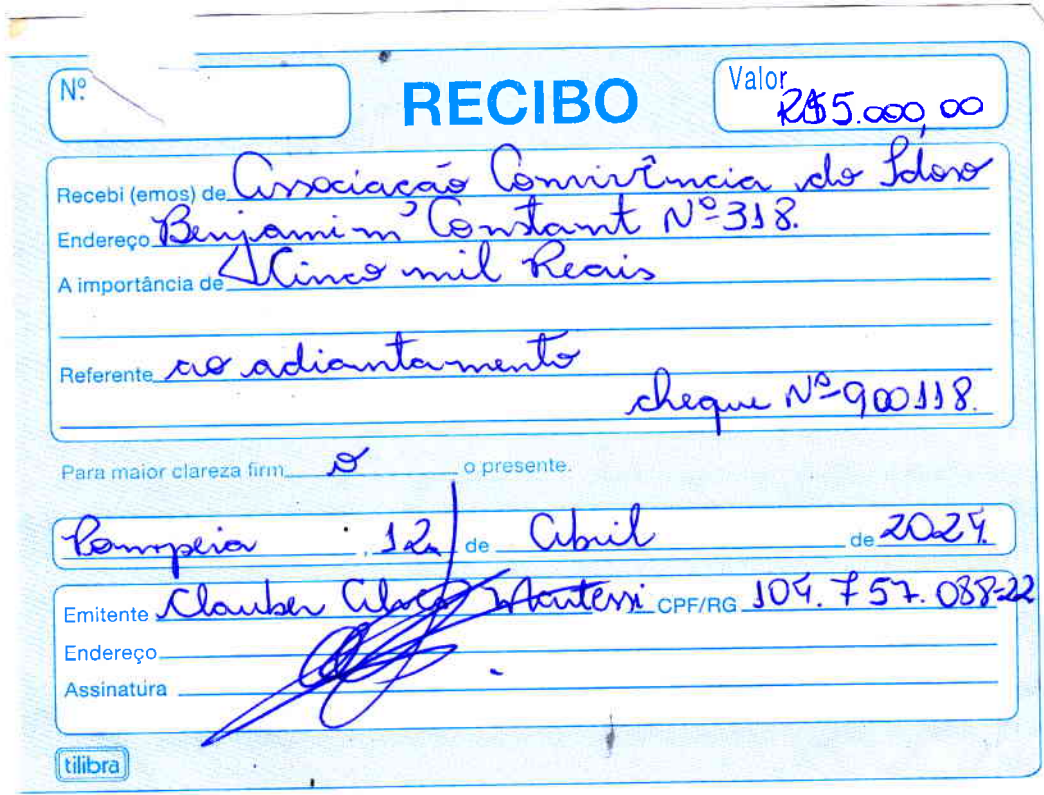 Nº
RECIBO
Valor R$5.000,00
Recebi (emos) de Associação Convivência do Idoso
Endereço Benjamim Constant Nº 318.
A importância de Cinco mil Reais
Referente ao adiantamento
cheque Nº 900118.
Para maior clareza firm o o presente.
Pompeia, 12 de Abril de 2024.
Emitente Clauber CPF/RG 104.757.088-22
Endereço
Assinatura
tilibra